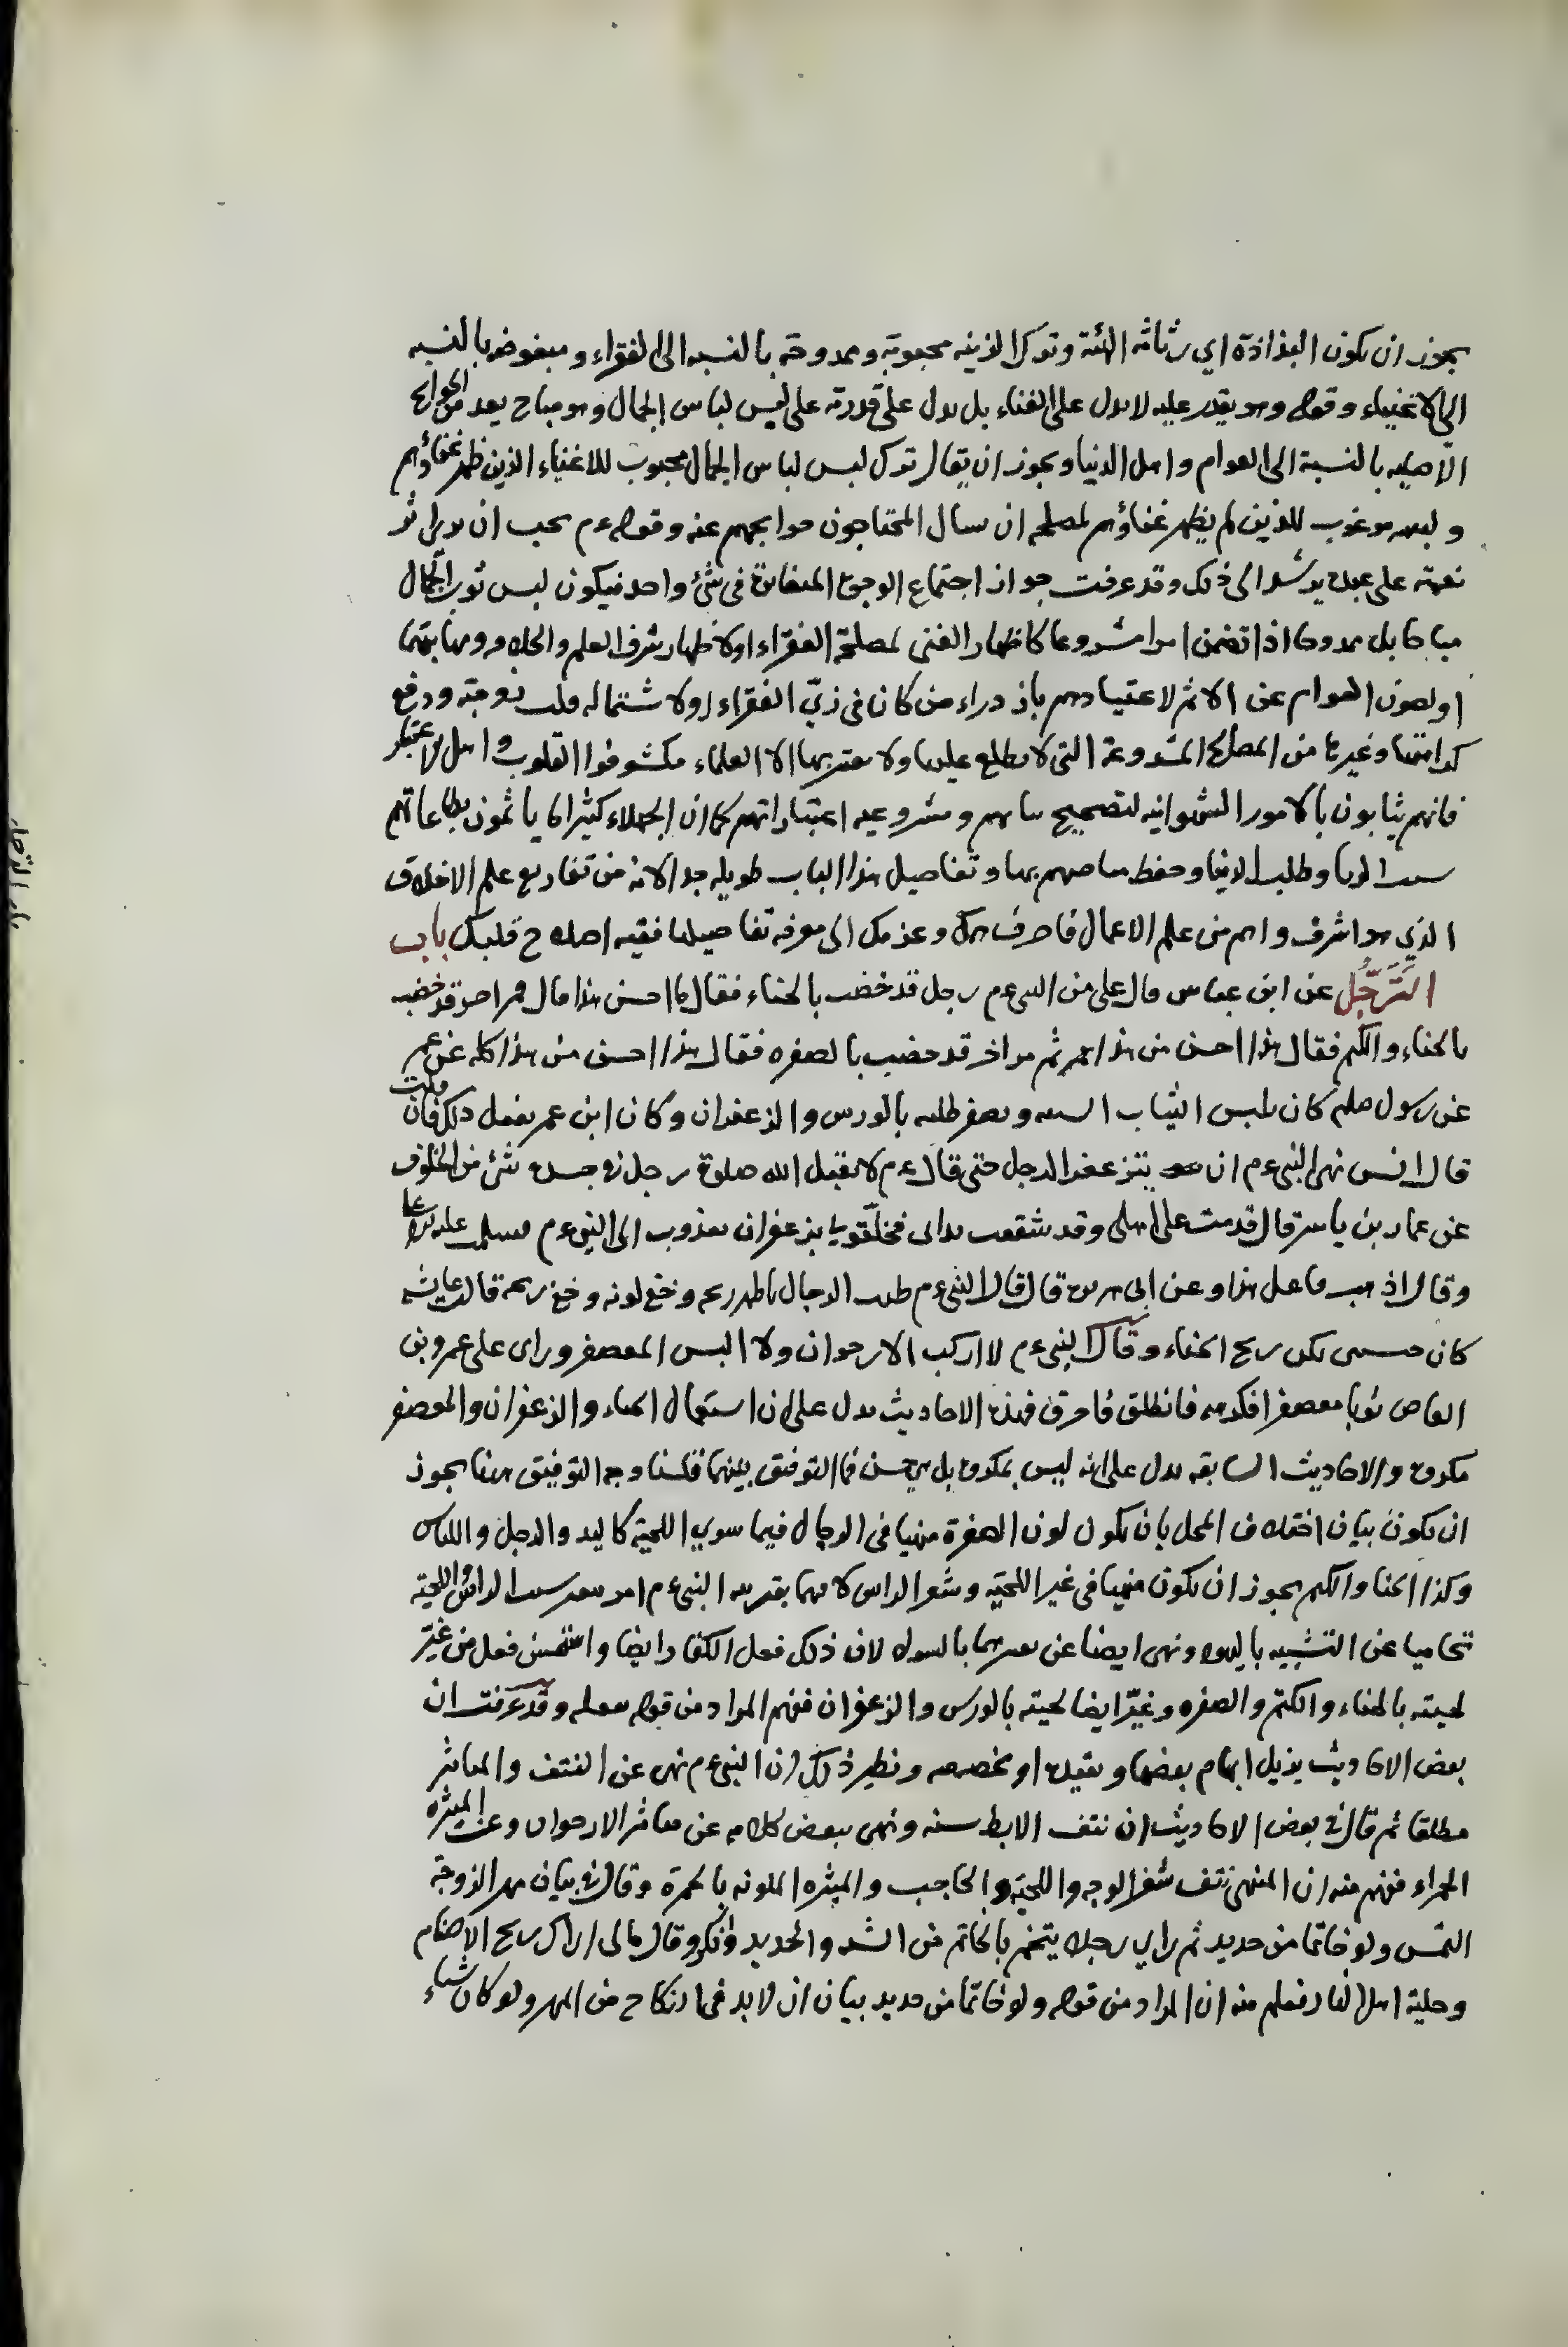 يجوز ان يكون البذاذة اي رثاثة الهئة وترك الزينه محبوبة وممدوحة بالنسبه الى الفقراء ومبغوضه بالنسبه
الى الاغنياء وقوله وهو يقدر عليه لا يدل على الغناء بل يدل على قدرته على لبس لباس الجمال وهو مباح يعد من الحوايج
الاصليه بالنسبة الى العوام واهل الدنيا ويجوز ان يقال ترك لبس لباس الجمال محبوب للاغنياء الذين ظهر غناؤهم
ولبسه مرغوب للذين لم يظهر غناؤهم لمصلحه ان يسال المحتاجون حوايجهم عنه وقوله عم يحب ان يرى اثر
نعمته على عبده يرشد الى ذلك وقد عرفت جواز اجتماع الوجوه في شئ واحد فيكون لبس ثوب الجمال
مباحا بل ممدوحا اذا تضمن امرا مشروعا كاظهار الغنى لمصلحة الفقراء او لاظهار شرف العلم والحلم ومهابتهما
او لصون العوام عن الاثم لاعتيادهم باذدراء من كان في زيّ الفقراء او لاشتماله قلب زوجته ودفع
كراهتها وغيرها من المصالح المشروعة التي لا يطلع عليها ولا يعتبرها الا العلماء مكشوفوا القلوب واهل الاعتبار
فانهم يثابون بالامور الشهوانيه لتصحيح نياتهم ومشروعيه اعتباراتهم كما ان الجهلاء كثيرا ما ياثمون بطاعاتهم
بسبب الريا وطلب الدنيا وحفظ مناصبهم بها وتفاصيل هذا الباب طويله جدا لانه من تفاريع علم الاخلاق
الذي هو اشرف واهم من علم الاعمال فاصرف همك وعزمك الى معرفه تفاصيلها ففيه اصلاح قلبك باب
التَّرَجُّل عن ابن عباس قال على من النبي عم رجل قد خضب بالحناء فقال ما احسن هذا قال فمر اخر قد خضب
بالحناء والكتم فقال هذا احسن من هذا ثم مر اخر قد خضب بالصفره فقال هذا احسن من هذا كله عن عمر
عن رسول صلعم كان يلبس الثياب ويصفر لحيته بالورس والزعفران وكان ابن عمر يفعل ذلك فان قلت
قال انس نهى النبي عم ان يتزعفر الرجل حتى قال عم لا يقبل الله صلوة رجل في جسده شئ من الخلوق
عن عمار بن ياسر قال قدمت على اهلي وقد شققت يداى فخلّقوني بزعفران فغدوت الى النبي عم فسلمت عليه
وقال اذهب فاغسل هذا وعن ابى هريره قال قال النبي عم طيب الرجال ما ظهر ريحه وخفي لونه قالت عايشه
كان حبيبى يكره ريح الحناء وقال النبي عم لا اركب الارجوان ولا البس المعصفر وراى على عمرو بن
العاص ثوبا معصفرا فكرهه فانطلق فاحرقه فهذه الاحاديث تدل على ان استعمال الحناء والزعفران والمعصفر
مكروه والاحاديث السابقه تدل على انه ليس بمكروه بل مستحسن فما التوفيق بينهما قلنا وجه التوفيق ههنا يجوز
ان يكون بيان اختلاف المحل بان يكون لون الصفرة منهيا في الرجال فيما سوي اللحية كاليد والرجل واللباس
وكذا الحنا والكتم يجوز ان يكون منهيا في غير اللحيه وشعر الراس لانهما النبي عم امر بتغيير شيب الراس واللحيه
تحاميا عن التشبيه باليهود ونهى ايضا عن تغييرهما بالسواد لان ذلك فعل الكفار ايضا واستحسن فعل من غيّر
لحيته بالحناء والكتم والصفره وغيّر ايضا لحيته بالورس والزعفران ففهم المراد من قوله وفعله وقد عرفت ان
بعض الاحاديث يزيل ابهام بعضها ويقيده او يخصصه ونظير ذلك ان النبي عم نهى عن النتف والمياثر
مطلقا ثم قال في بعض الاحاديث ان نتف الابط سنه ونهى ببعض كلامه عن مياثر الارجوان وعن الميثره
الحمراء ففهم منه ان المنهى نتف شعر الوجه واللحيه والحاجب والميثره الملونه بالحمرة وقال في بيان مهر الزوجة
التمس ولو خاتما من حديد ثم راي رجلا يتختم بالخاتم من الشبه والحديد وانكره وقال مالى اراك ريح الاصنام
وحلية اهل النار فعلم منه ان المراد من قوله ولو خاتما من حديد بيان ان لا بد في النكاح من المهر ولو كان شياء